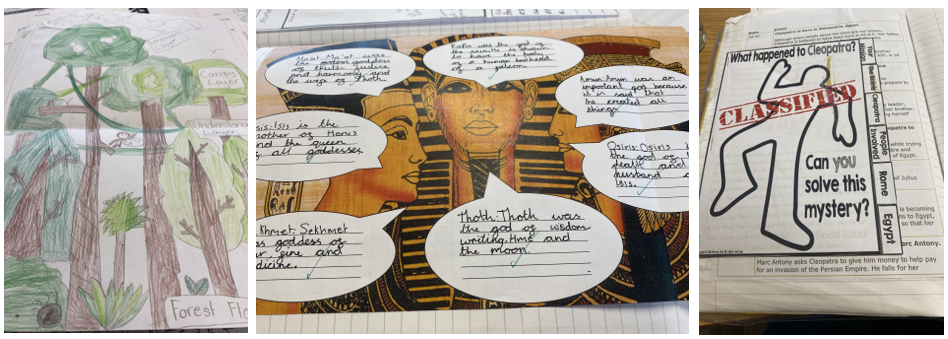 Canopy
Layer
Understory
Layer
Forest Flo
Ma'at: Ma'at was
the goddess
of truth, justice
and harmony and
the wife of Thoth.
Ra: Ra was the god of
the sun. He is shown
to have the body
of a human and head
of a falcon.
Amun: Amun was an
important god because
it is said that
he created all
things.
Isis: Isis is the
mother of Horus
and the queen
of all goddesses
Osiris: Osiris i
the god of
death and
husband o
Isis.
Khmet: Sekhmet
as goddess of
ar fire and
dicine.
Thoth: Thoth was
the god of wisdom
writing, time and
the moon.
What happened to Cleopatra?
CLASSIFIED
Can you
solve this
mystery?
Your
Mission
Cleopatra
People
Involved
Rome
Egypt
Cleopatra is born in Alexandria, Egypt.
e leader,
er brother.
ng herself
opatra to
while trying
of Egypt.
of Julius
is becoming
ns to Egypt,
so that her
arc Antony.
Marc Antony asks Cleopatra to give him money to help pay
for an invasion of the Persian Empire. He falls for her